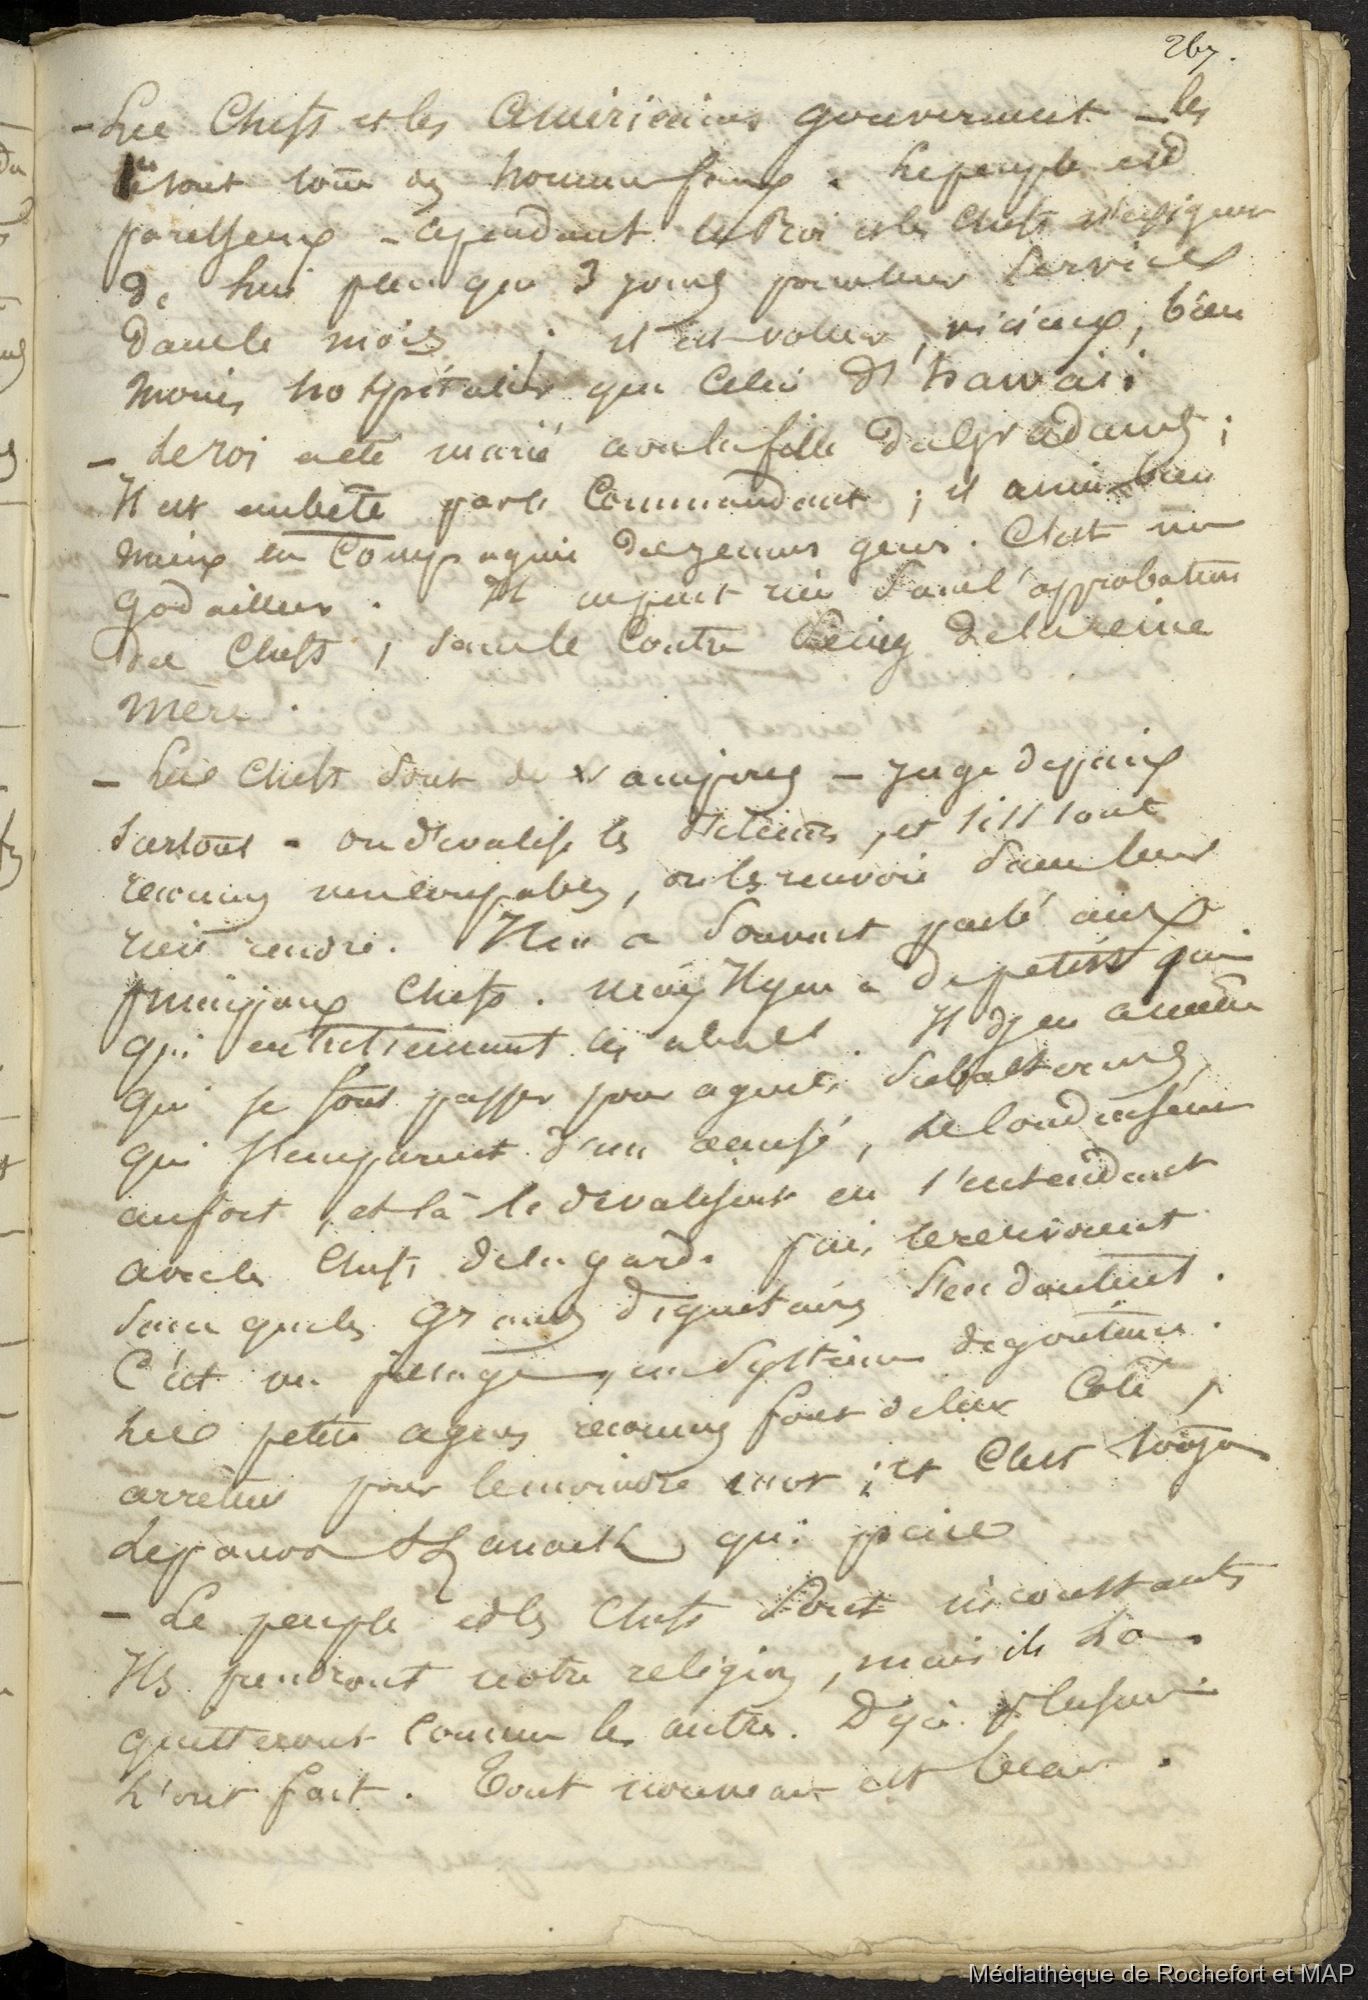 267.
- Les Chefs et les Américains gouvernent - les
1ers sont tous des hommes faux. Le peuple est
paresseux - cependant le Roi et les Chefs n'exigent
de lui plus que 3 jours pour leur service
dans le mois ; il est voleur, vicieux, bien
moins hospitalier que celui d'hawaii
- Le roi a été marié avec la fille
Il est embêté par le Commandant ; il aime bien
mieux en Compagnie des jeunes gens. C'est un
godailleur. Il ne fait rien sans l'approbation
des Chefs, sans le contre seing de la reine
mère.
- Les Chefs sont de - juge de paix
surtout - on dévalise les détenus, et s'ils sont
reconnus non coupables, on les renvoie sans leur
rien rendre. Il en a souvent parlé aux
principaux Chefs. mais Il y en a de petits qui
qui entretiennent les abus. Il y en a même
qui se font passer pour agents subalternes,
qui s'emparent d'un accusé, le conduisent
au fort, et là le dévalisent en s'entendant
avec les Chefs de la garde puis le renvoient
sans que les grands dignitaires s'en doutent.
C'est un pillage, un système dégoutant.
Les petits agens reconnus font de leur côté,
arrêtés pour le moindre mot ; et c'est toujours
Le pauvre Kanack qui paie
- Le peuple et les Chefs sont inconstants
Ils prendront notre religion, mais ils la
quitteront comme les autres. Déjà plusieurs
l'ont fait. Tout nouveau est beau.
Médiathèque de Rochefort et MAP